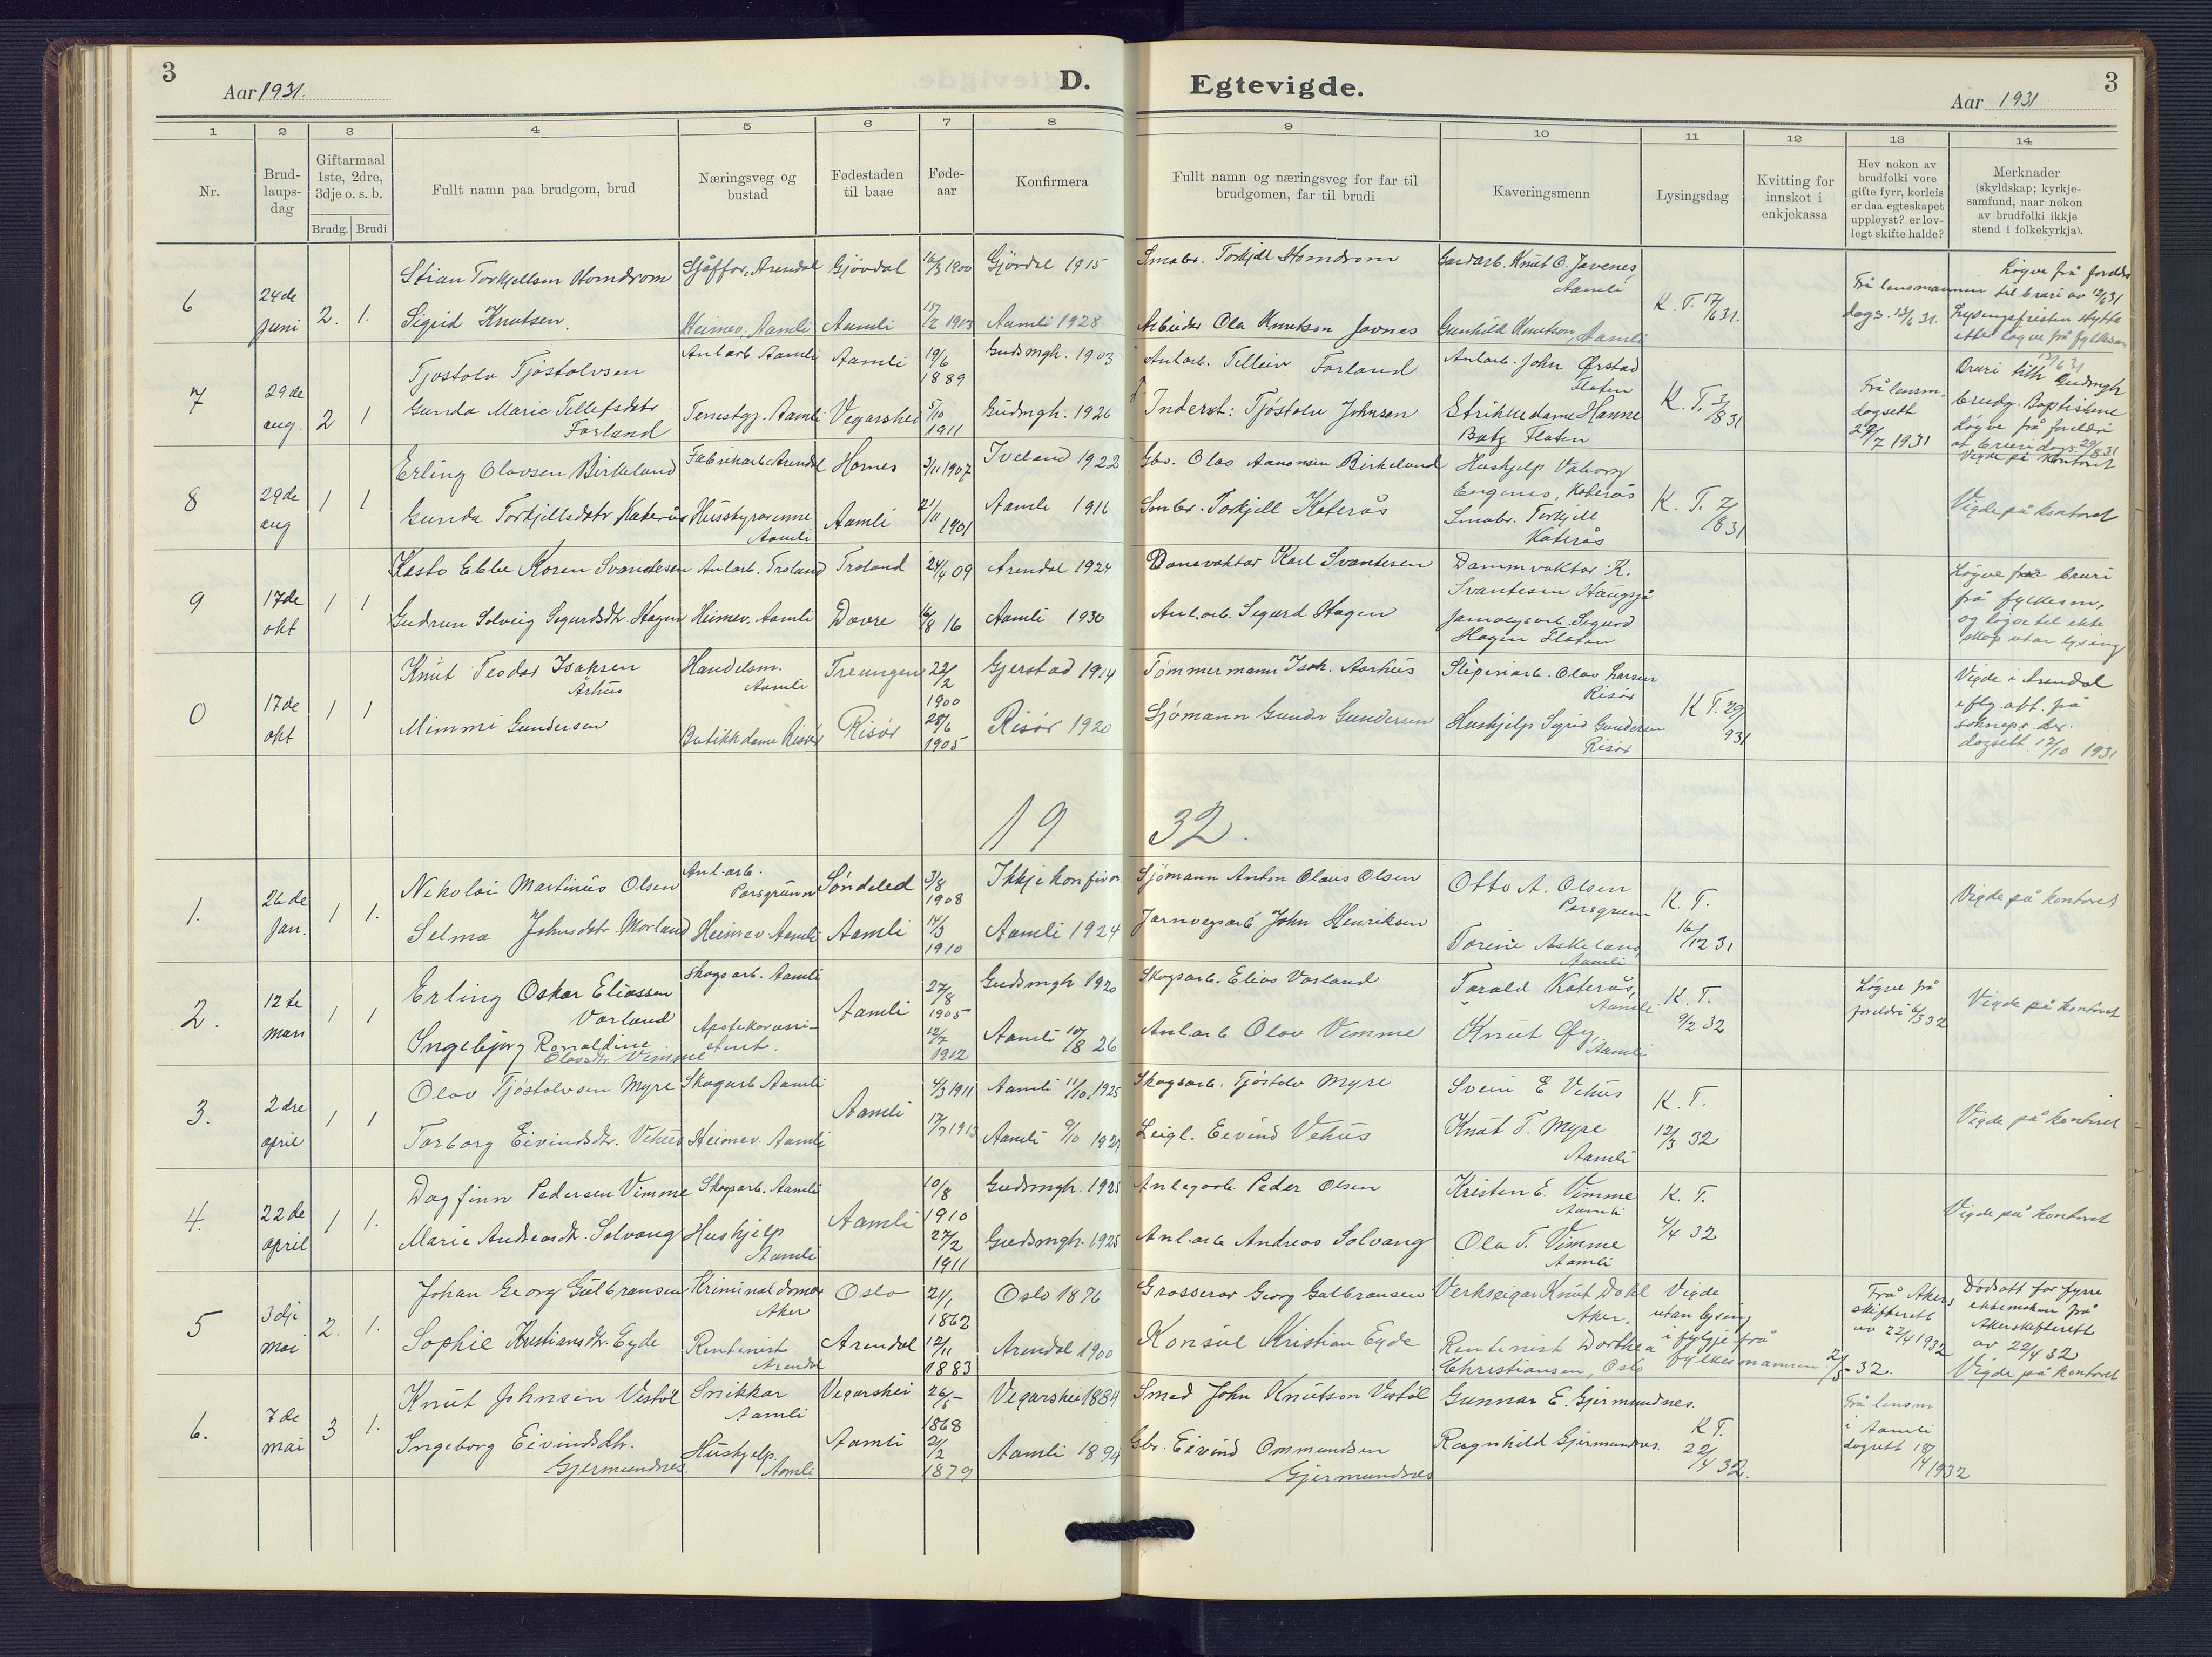 3
Aar 1931.
D.
Egtevigde.
Aar 1931
3
1 2 3 4 5 6 7 8 9 10 11 12 13 14
Nr.
Brud-
laups-
dag
Giftarmaal
1ste, 2dre,
3dje o. s. b.
Brudg. Brudi
Fullt namn paa brudgom, brud
Næringsveg og
bustad
Fødestaden
til baae
Føde-
aar
Konfirmera
Fullt namn og næringsveg for far til
brudgomen, far til brudi
Kaveringsmenn
Lysingsdag
Kvitting for
innskot i
enkjekassa
Hev nokon av
brudfolki vore
gifte fyrr, korleis
er daa egteskapet
uppløyst? er lov-
legt skifte halde?
Merknader
(skyldskap; kyrkje-
samfund, naar nokon
av brudfolki ikkje
stend i folkekyrkja).
6
24de
Juni
2. 1.
Stian Torkjellsen Homdrom
Sigrid Knutsen.
Sjåffør, Arendal
Heimev. Aamli
Gjövdal
Aamli
16/3 1900
17/2 1913
Gjövdal 1915
Aamli 1928
Smabr. Torkjell Homdrom
Arbeider Ola Knutsen Jovnes
Gardarb. Knut O. Jovenes,
Aamli
Gunhild Knutson, Aamli
K. T. 17/6 31.
Frå lensmannen
dags. 13/6 31.
Løyve frå foreldre
til bruri av 12/6 31
Lysingsfristen stytta
etter løyve frå fylkesm
7
29de
aug.
2 1
Tjostolv Tjostolvsen
Gunda Marie Tellefsdtr
Forland
Anl.arb. Aamli
Tenestgj. Aamli
Aamli
Vegarshei
19/6
1889
5/10
1911
Gudsmgh. 1903
Gudmgh. 1926
Anl.arb. Telleiv Forland
Inderst: Tjöstolv Johnsen
Anl.arb. John Ørstad
Flaten
Strikkedame Hanne
Flaten
K. T. 3/8 31
Frå lensm.
dagsett
29/7 1931
Bruri tilh Gudsmgh
brudg. Baptistene
Løyve frå foreldri
at bruri dags. 29/8 31
Vigde på kontoret
8
29de
aug
1 1
Erling Olavsen Birkeland
Gunda Torkjellsdtr Katerås
Fabrikarb. Arendal
Husstyrarinne
Aamli
Hornes
Aamli
3/11 1907
21/11 1901
Iveland 1922
Aamli 1916
Gbr. Olav Aanonsen Birkeland
Smbr. Torkjell Katerås
Hushjelp Valborg
Katerås
Smabr. Torkjell
Katerås
K. T. 7/8 31
Vigde på kontoret
9
17de
okt
1 1
Kasto Ebbe Koren Svendesen
Gudrun Solveig Segurdsdtr. Hagen
Anl.arb. Froland
Heimev. Aamli
Froland
Dovre
24/4 09
16/8 16
Arendal 1924
Aamli 1930
Damvaktar Karl Svantesen
Anl.arb. Segurd Hagen
Dammvaktar K.
Svantesen Haugsjå
Jarnvegsarb. Segurd
Hagen Flaten
Løyve for bruri
frå fylkesm,
og løyve til ekte
skap utan lysing
0
17de
okt
1 1
Knut Teodor Isaksen
Århus
Mimmi Gundersen
Handelsm.
Aamli
Butikkdame Risör
Treungen
Risör
22/2
1900
28/6
1905
Gjerstad 1914
Risör 1920
Tømmermann Isak Aarhus
Sjömann Gundr Gundersen
Sliperiarb. Olav Larsen
Risör
Hushjelp Sigrid Gundersen
Risör
K T. 29/9 31
Vigde i Arendal
eftr. att. frå
soknepr. her.
dagsett 17/10 1931
1932.
1.
26de
Jan.
1 1.
Nikolai Martinus Olsen
Selma Johnsdtr. Morland
Anl.arb.
Porsgrunn
Heimev. Aamli
Söndeled
Aamli
3/8
1908
14/3
1910
Ikkje konfirm
Aamli 1924
Sjömann Anton Olaus Olsen
Jarnvegsarb John Henriksen
Otto A. Olsen
Porsgrunn
Torine Askeland,
Aamli
K. T.
16/12 31
Vigde på kontoret
2.
12te
mars
1 1
Erling Oskar Eliassen
Vorland
Ingebjörg Ronaldine
Olavsdtr. Vimme
Skogsarb. Aamli
Apotekarassi-
stent.
Aamli
27/8
1905
12/7
1912
Gudsmgh 1920
Aamli 10/8 26
Skogsarb. Elias Vorland
Anl.arb Olav Vimme
Tarald Katerås,
Aamli
Knut Øy,
Aamli
K. T.
9/2 32
Løyve frå
foreldri 6/3 32
Vigde på kontoret
3.
2dre
april
1 1
Olav Tjöstolvsen Myre
Torborg Eivindsdtr. Vehus
Skogarb Aamli
Heimev. Aamli
Aamli
4/3 1911
17/7 1913
Aamli 11/10 1925
Aamli 9/10 192
Skogsarb. Tjöstolv Myre
Leigl. Eivind Vehus
Svein E Vehus
Knut T. Myre
Aamli
K. T.
12/3 32
Vigde på kontoret
4.
22de
april
1 1.
Dagfinn Pedersen Vimme
Marie Andreasdtr. Solvang
Skogsarb. Aamli
Hushjelp
Aamli
Aamli
10/8
1910
27/2
1911
Gudsmgh. 1925
Gudsmgh. 1925
Anlegarb. Peder Olsen
Anl.arb Andreas Solvang
Kristen E. Vimme
Aamli
Ola T. Vimme
Aamli
K. T.
4/4 32
Vigde på kontoret
5
3dje
mai
2. 1.
Johan Georg Gulbransen
Sophie Kristiansdtr. Eyde
Kriminaldomar
Aker
Rentenist
Arendal
Oslo
Arendal
21/1
1862
12/11
1883
Oslo 1876
Arendal 1900
Grosserar Georg Gulbransen
Konsul Kristian Eyde
Verkseigar Knut Dahl
Aker.
Rentenist Dorthea
Christiansen, Oslo
Vigde
utan lysing
i fylgje frå
fylkesmannen 2/5-32.
Frå Akers
skifterett
av 22/4 1932
Dødsatt for fyrre
ektemaken frå
Akerskifterett
av 22/4 32
Vigde på kontoret
6.
7de
mai
3 1.
Knut Johnsen Vestöl
Ingeborg Eivindsdtr.
Gjermundnes
Snikkar
Aamli
Hushjelp.
Aamli
Vegarshei
Aamli
26/5
1868
21/2
1879
Vegarshei 1884
Aamli 1894
Smed John Knutson Vestöl
Gbr. Eivind Ommundsen
Gjermundnes
Gunnar E. Gjermundnes.
Ragnhild Gjermundnes.
K T.
22/4 32.
Frå lensm
i Aamli
dagsett 18/4 1932